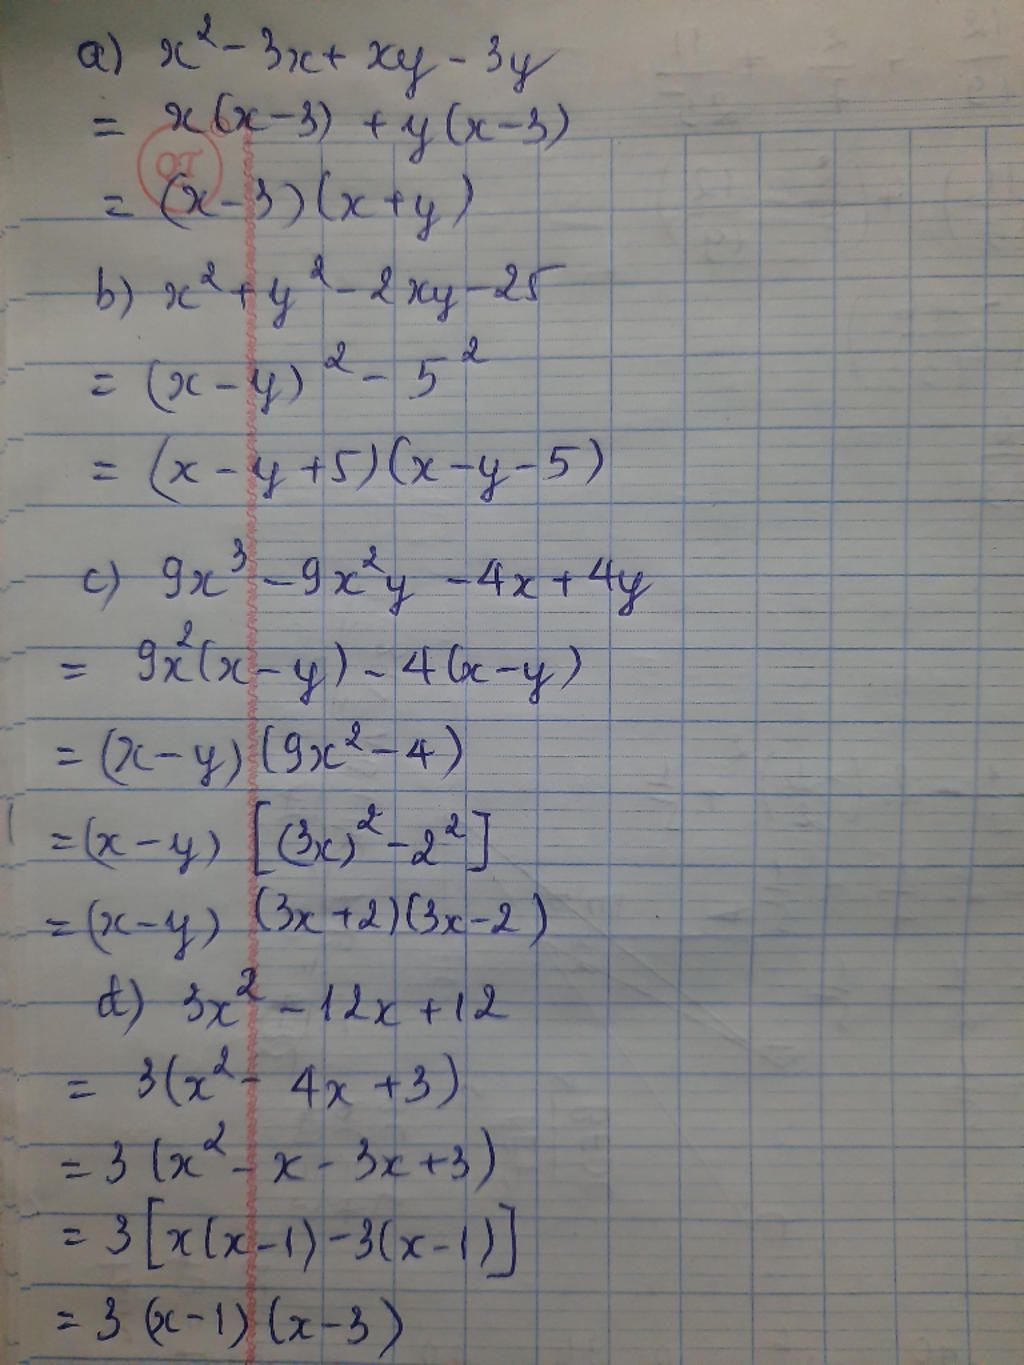 a) x² - 3x + xy - 3y
= x(x-3) + y(x-3)
= (x-3)(x+y)
b) x² + y² - 2xy - 25
= (x-y)² - 5²
= (x-y+5)(x-y-5)
c) 9x³ - 9x²y - 4x + 4y
= 9x²(x-y) - 4(x-y)
= (x-y)(9x²-4)
= (x-y) [(3x)² - 2²]
= (x-y) (3x+2)(3x-2)
d) 3x² - 12x + 12
= 3(x² - 4x + 3)
= 3(x² - x - 3x + 3)
= 3[x(x-1) - 3(x-1)]
= 3(x-1)(x-3)